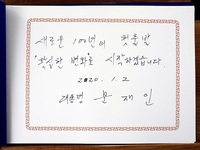 새로운 100년의 첫출발
'확실한 변화'로 시작하겠습니다
2020. 1. 2
대통령 문재인